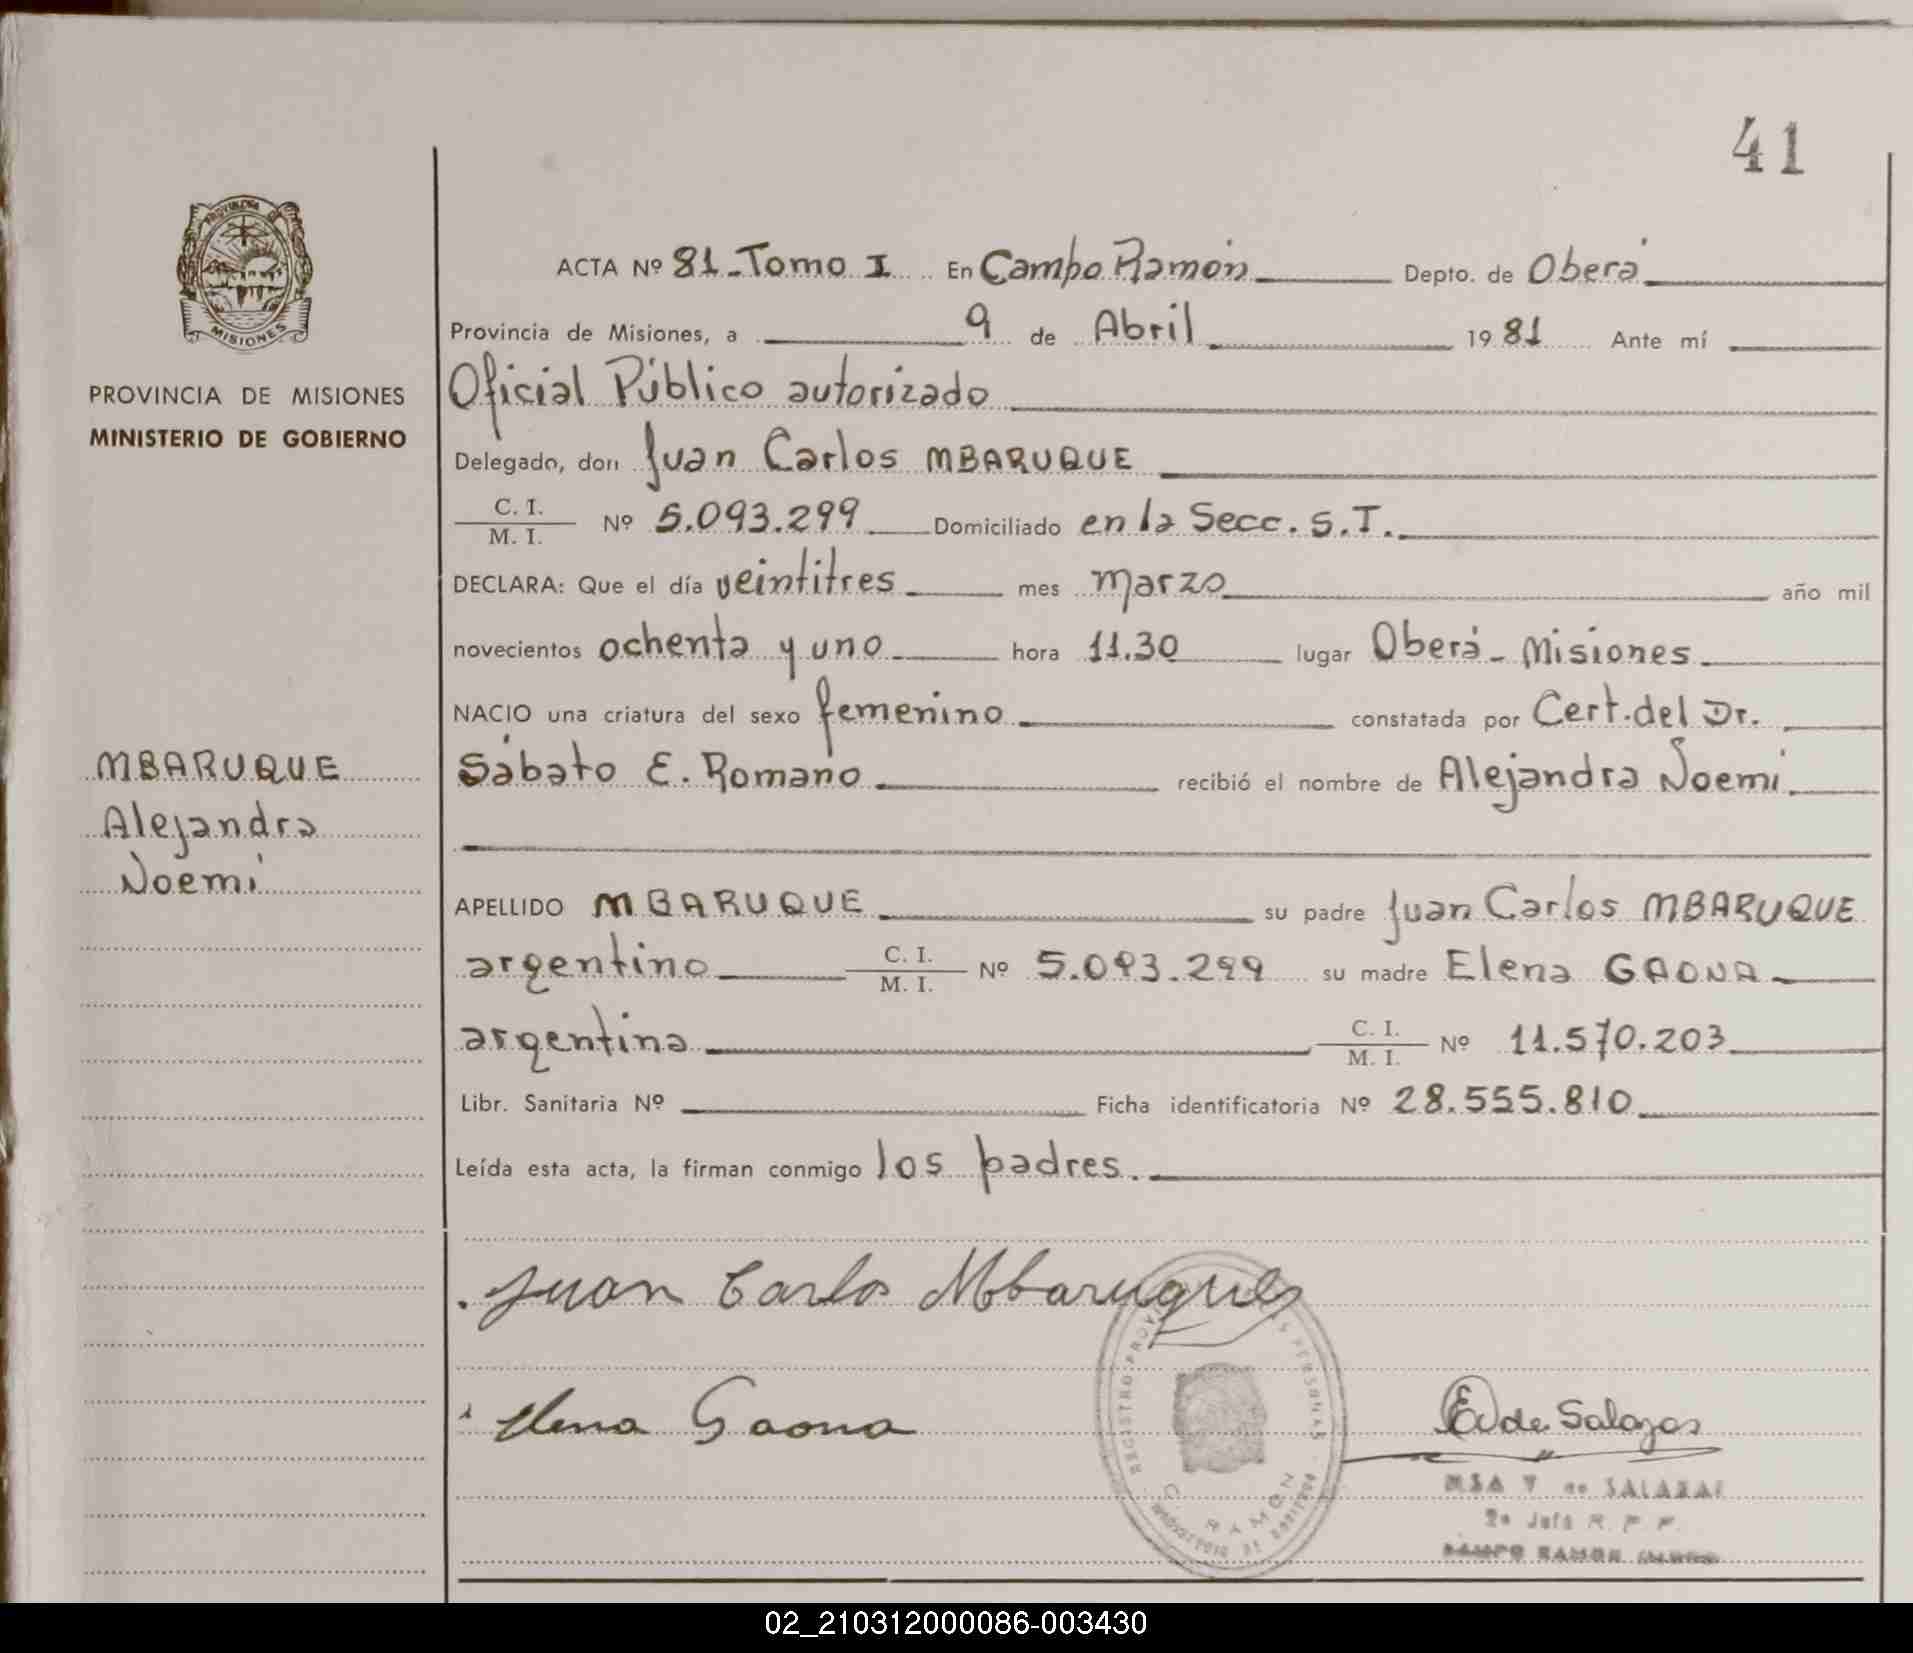 41
PROVINCIA DE
MISIONES
PROVINCIA DE MISIONES
MINISTERIO DE GOBIERNO
MBARUQUE
Alejandra
Noemí
ACTA Nº 81-Tomo I En Campo Ramón Depto. de Oberá
Provincia de Misiones, a 9 de Abril 1981 Ante mí
Oficial Público autorizado
Delegado, don Juan Carlos MBARUQUE
C. I.
M. I. Nº 5.093.299 Domiciliado en la Secc. S.T.
DECLARA: Que el día veintitres mes marzo año mil
novecientos ochenta y uno hora 11.30 lugar Oberá - Misiones
NACIO una criatura del sexo femenino constatada por Cert. del Dr.
Sábato E. Romano recibió el nombre de Alejandra Noemí.
APELLIDO MBARUQUE su padre Juan Carlos MBARUQUE
argentino C. I.
M. I. Nº 5.093.299 su madre Elena GAONA
argentina C. I.
M. I. Nº 11.570.203
Libr. Sanitaria Nº Ficha identificatoria Nº 28.555.810
Leída esta acta, la firman conmigo los padres.
Juan Carlos Mbaruques
Elena Gaona
E de Salazar
REGISTRO PROV PERSONAS
C. RAMON
V de SALAZAR
2a Jefa R. P. P.
CAMPO RAMON
02_210312000086-003430